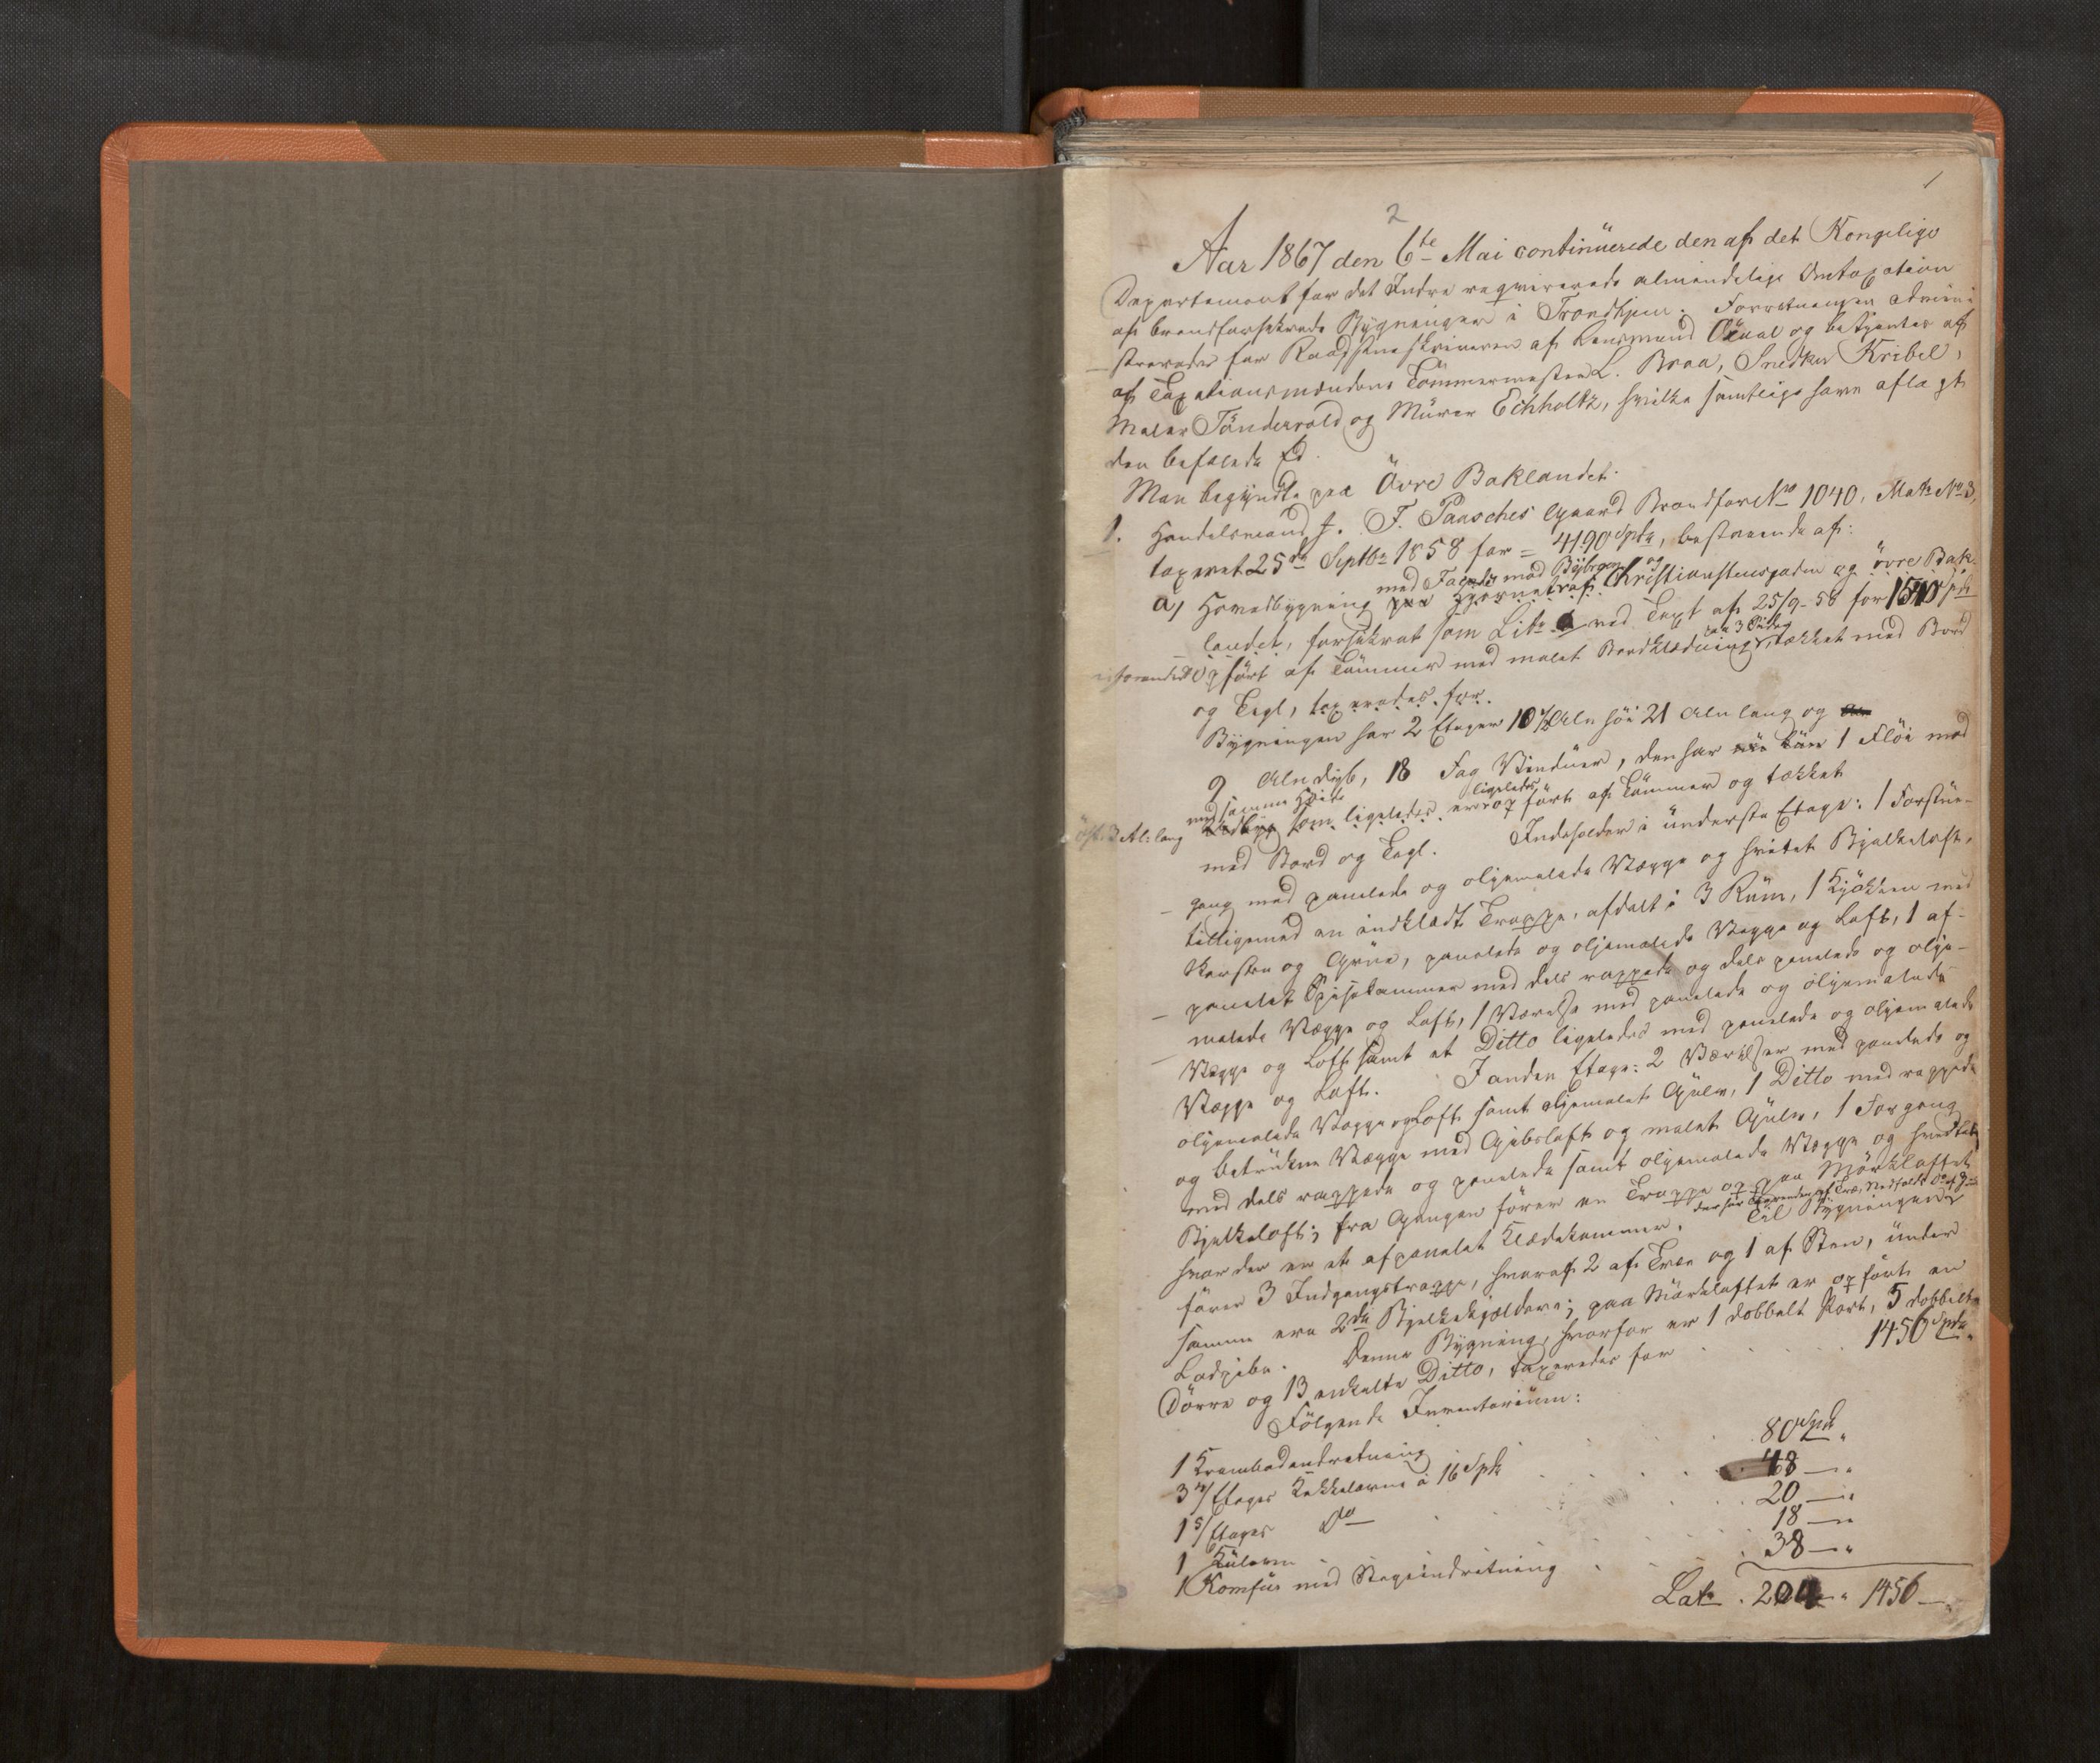 1
2
Aar 1867 den 6te Mai continuerede den af det Kongelige
Departement for det Indre requirerede almindelige Omtaxation
af brandforsikrede Bygninger i Trondhjem. Forretningen admini-
streredes for Raadstueskriveren af Lensmand Öxaal og betjentes af
af Taxationsmændene Tømmermester L. Braa, Snedker Kribel,
Maler Töndervold og Murer Echholtz, hvilke samtlige have aflagt
den befalede Ed.
Man begyndte paa Övre Baklandet.
1. Handelsmand J. F. Paasches Gaard Brandfor No 1040, Matr No 3,
taxeret 25de Septbr 1858 for = 4190 Spdr, bestaaende af:
med Facade mod Bybroen og
a, Hovedbygning paa Hjørnet af Christianstensgaden og övre Bak-
landet, forsikret som Litr a ved Taxt af 25/9-58 for 1510 Spdr
paa 3 Sider
uforandret Opført af Tømmer med malet Bordklædning, tækket med Bord
og Tegl, taxeredes for
Bygningen har 2 Etager 10 1/2 Aln höi 21 Aln lang og
9 Aln dyb, 18 Fag Vinduer, den har 1 Flöi mod
med samme Høide ligeledes
Öst. 3 Al: lang som ligeledes er opført af Tømmer og tækket
med Bord og Tegl. Indeholder i underste Etage: 1 Forstue-
gang med panelede og oljemalede Vægge og hvidtet Bjelkeloft,
tilligemed en indklædt Trappe, afdelt i 3 Rum, 1 Kjøkken med
Skorsten og Grue, panelede og oljemalede Vægge og Loft, 1 af-
panelet Spisekammer med dels rappede og dels panelede og olje-
malede Vægge og Loft, 1 Værelse med panelede og oljemalede
Vægge og Loft samt et Ditto ligeledes med panelede og oljemalede
Vægge og Loft. I anden Etage: 2 Værelser med panelede og
oljemalede Vægge og Loft samt oljemalet Gulv, 1 Ditto med rappede
og betrukne Vægge med Gibsloft og malet Gulv, 1 Forgang
med dels rappede og panelede samt oljemalede Vægge og hvidtet
Bjelkeloft; fra Gangen fører en Trappe op paa Mørkloftet
hvor der er et afpanelet Klædekammer. Til Bygningen
fører 3 Indgangstrappe, hvoraf 2 af Træ og 1 af Sten, under
samme ere 2de Bjelkekjældere; paa Mørkloftet er opført en
Ladpibe. Denne Bygning, hvorfor er 1 dobbelt Port, 5 dobbelte
Dørre og 13 enkelte Ditto, taxeredes for . . . . . 1456 Spdr "
Følgende Inventarium:
1 Krambodindretning . . . 80 Spdr "
3 4/Etages Kakkelovne à 16 Spdr . . . . 48 — "
1 5/Etages do . . . . 20 — "
1 Kulovn . . . . 18 — "
1 Komfur med Stegeindretning . . . . 38 — "
Lat. . 204 — " 1456 — "